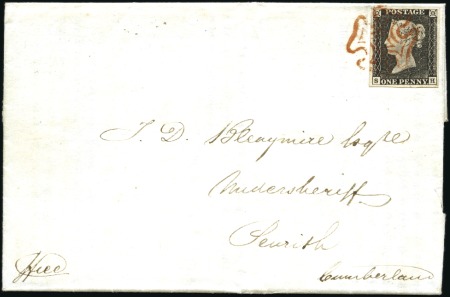 POSTAGE
S H
ONE PENNY
J. D. Bleaymire Esqre
Undersheriff
Penrith
Cumberland